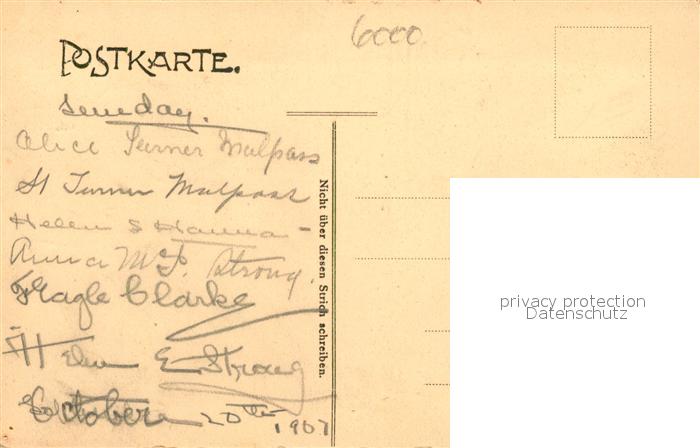 6000.
POSTKARTE.
Sunday.
Alice Turner Malpass
St Turner Malpass
Helen S Hanna
Anna McF. Strong.
Clarke
Helen E Strong
October 20th 1907
Nicht über diesen Strich schreiben.
privacy protection
Datenschutz